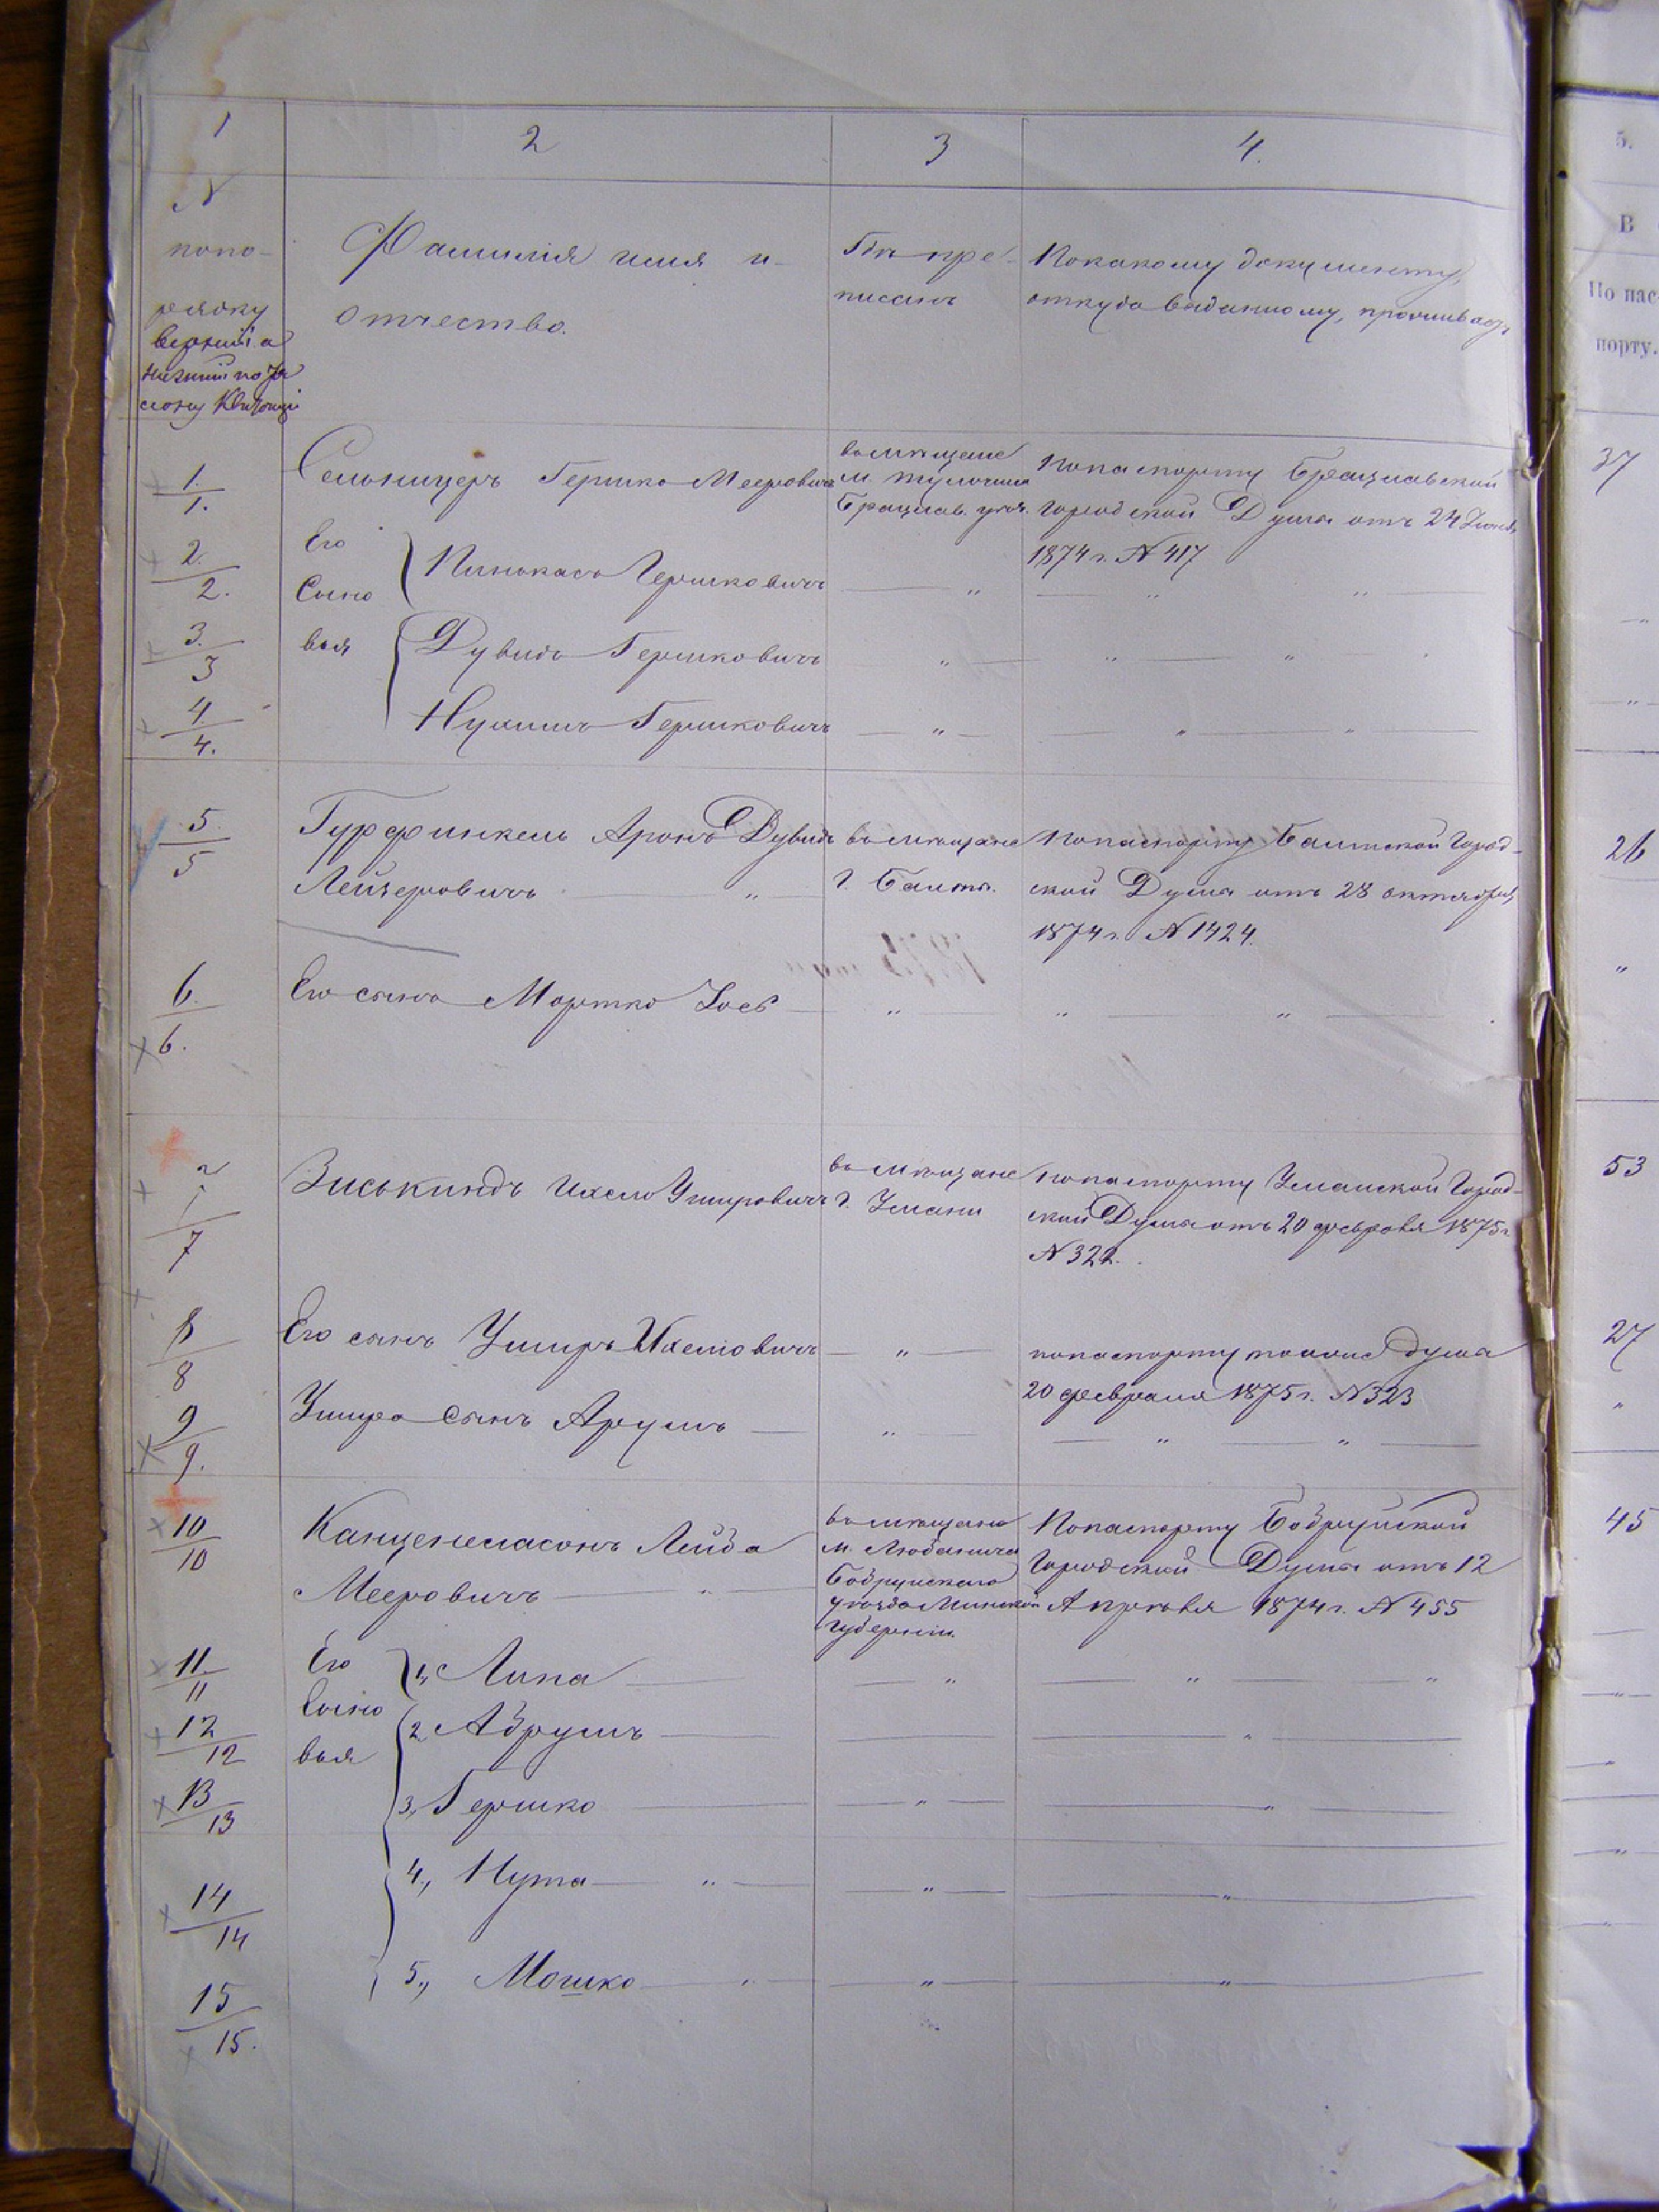 1 2 3 4.
N
попо-
рядку
верхній а
нижній по
Фамилія имя и
отчество.
Гдѣ при-
писанъ
Покакому документу,
откуда выданному, проживаетъ
1. 1.
Сельницеръ Гершко Мееровичъ
въ мѣщане
м. Тульчина
Брацлав. уѣзд.
Попаспорту Брацлавской
городской Думы отъ 24 Іюня
1874 г. N 417
2. 2.
Его Сыно
Пинькасъ Гершковичъ
" " "
3. 3
вья
Дувидъ Гершковичъ
" " "
4 4.
Нухимъ Гершковичъ
" " "
5. 5
Гурфинкель Аронъ Дувидъ
Лейзеровичъ "
въ мѣщане
г. Балты.
Попаспорту Балтской Город-
ской Думы отъ 28 октября
1874 г. N 1424.
6. 6.
Его сынъ Мортко Іосъ
" " "
7
Зиськиндъ Ихель Ушеровичъ
въ мѣщане
г. Умани
попаспорту Уманской Город-
ской Думы отъ 20 февраля 1875 г
N 322.
8 8
Его сынъ Ушеръ Ихелевичъ
"
попаспорту тойже Думы
20 февраля 1875 г. N 323
9 9.
Ушера сынъ Арумъ
" " "
10 10
Канценеласонъ Лейба
Мееровичъ "
въ мѣщане
м. Любаничи
Бобруйскаго
уѣзда Минской
губерніи.
Попаспорту Бобруйской
Городской Думы отъ 12
Апрѣля 1874 г. N 455
11. 11
Его
1, Липа
" " "
12 12
Сыно
2, Абрумъ
"
вья
13 13
3, Гершко
" "
14 14
4., Нута "
" "
15 15.
5., Мошко "
" "
5.
В
По пас
порту.
37
26
"
53
27
"
45